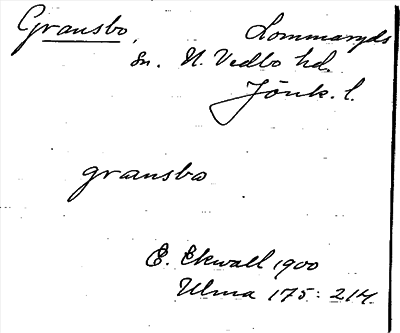 Gransbo, Lommaryds
sn. N. Vedbo hd.
Jönk. l.
gransbo
E. Ekwall 1900
Ulma 175: 214.